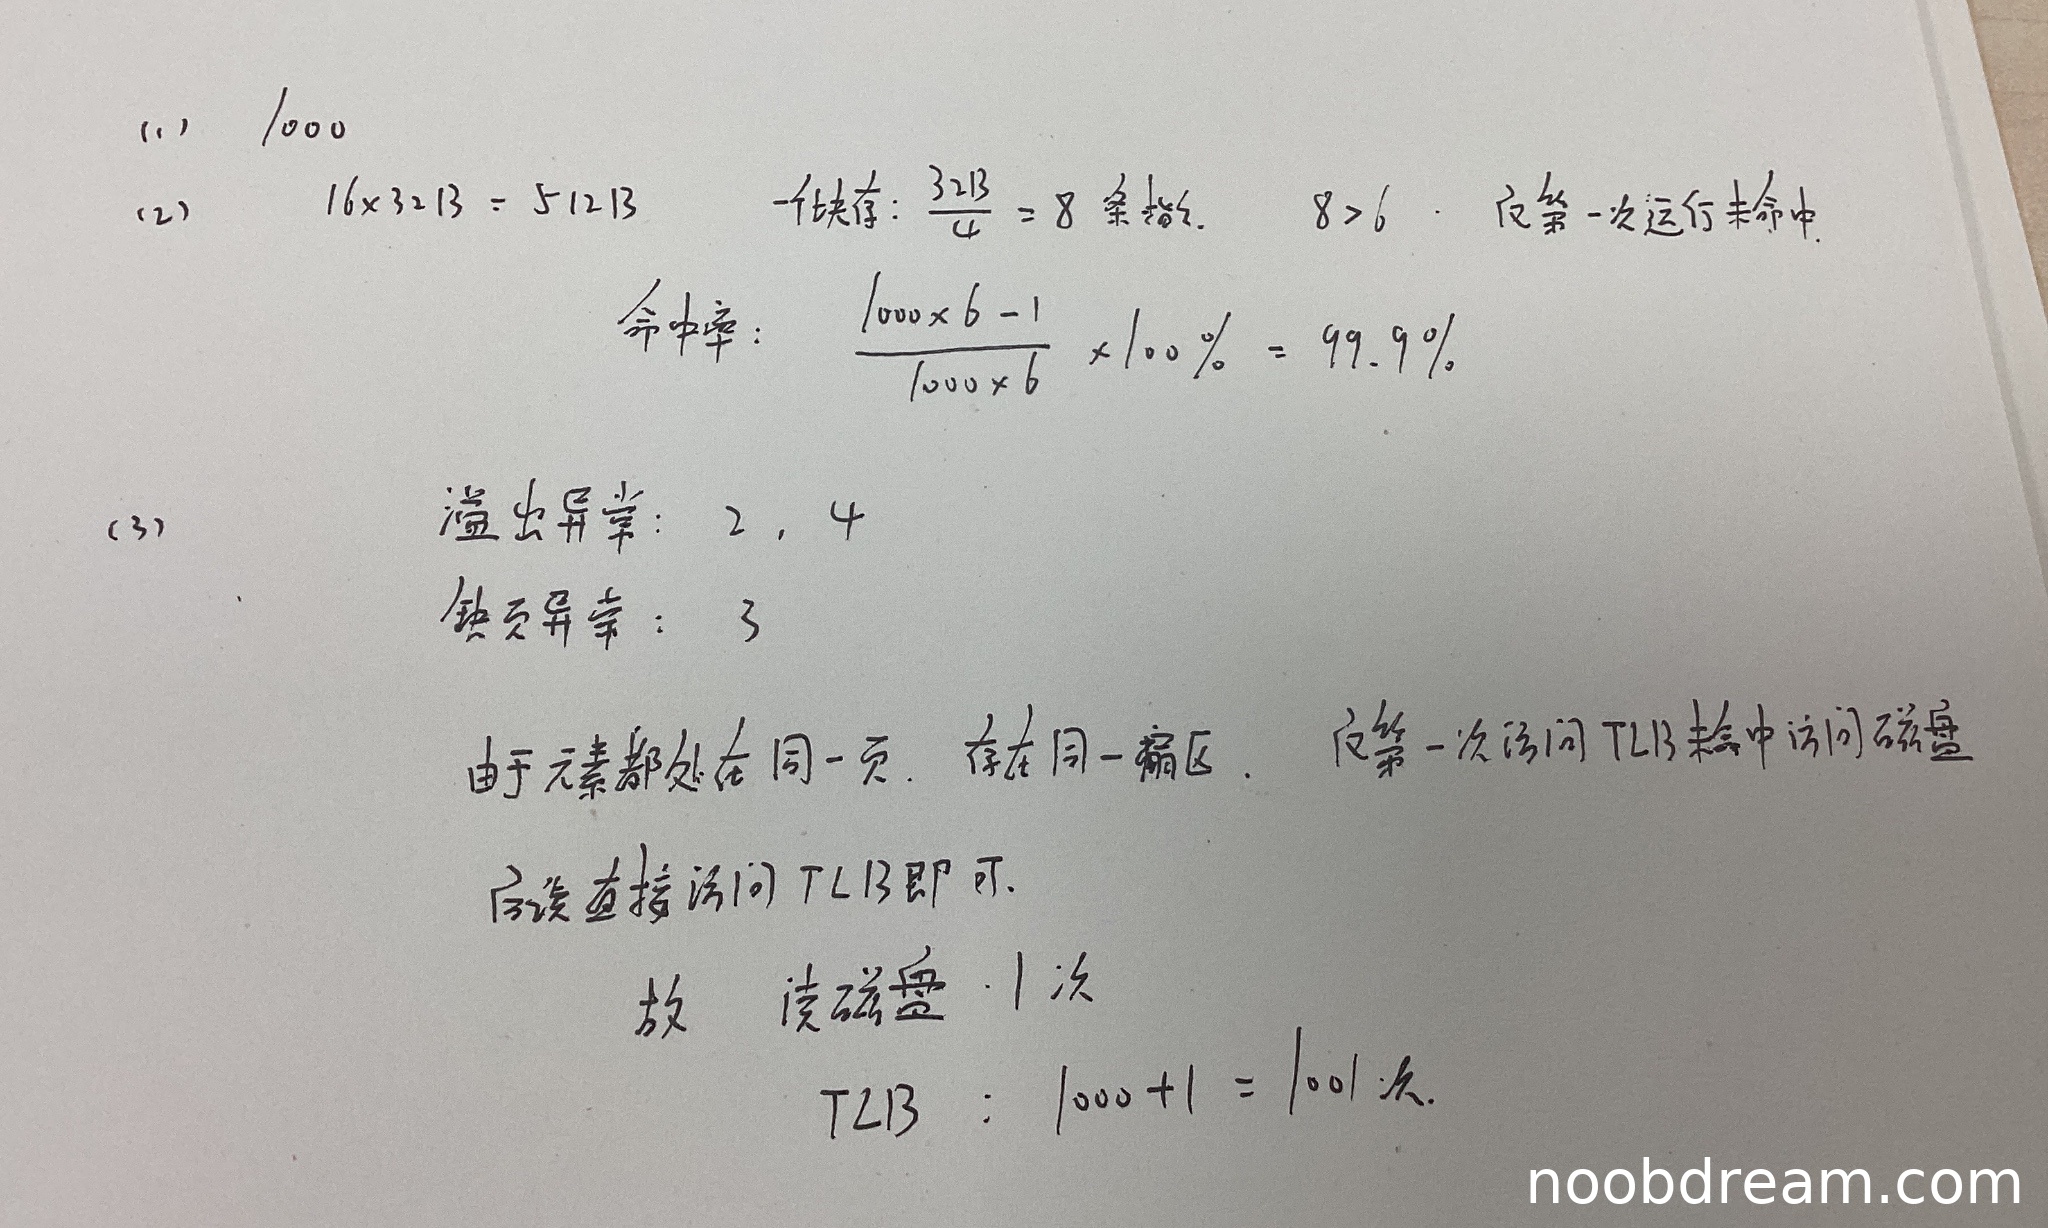 (1) 1000
(2) 16×32B = 512B 一个块存: 32B/4 = 8 条指令. 8>6 . 仅第一次运行未命中.
命中率: (1000×6-1)/(1000×6) ×100% = 99.9%
(3) 溢出异常: 2, 4
缺页异常: 3
由于元素都处在同一页. 存在同一扇区. 仅第一次访问TLB未命中访问磁盘
后续直接访问TLB即可.
故 读磁盘 1次
TLB : 1000+1 = 1001次.
noobdream.com